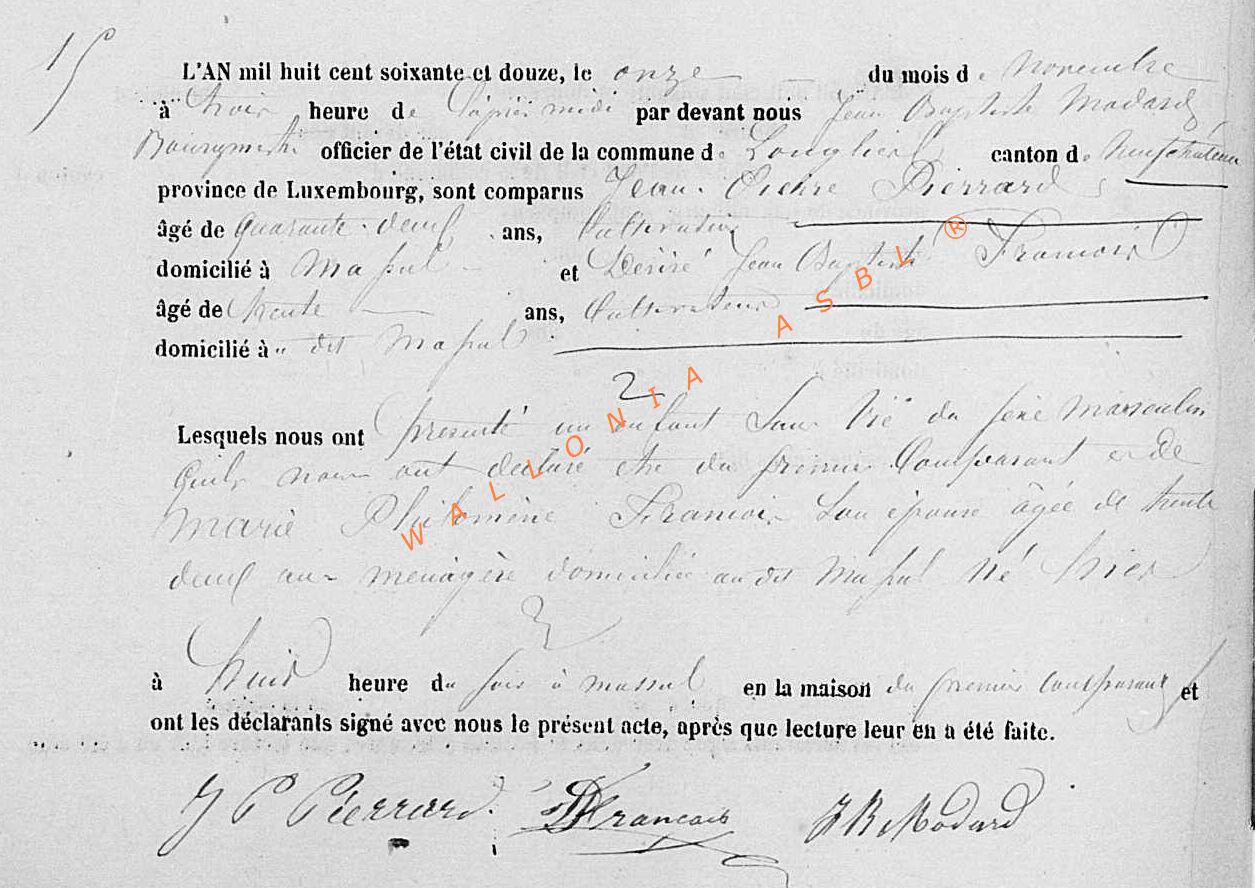 15
L'AN mil huit cent soixante et douze, le onze du mois de Novembre
à trois heure de l'après midi par devant nous Jean Baptiste Modard
Bourgmestre officier de l'état civil de la commune de Longlier canton de Neufchateau
province de Luxembourg, sont comparus Jean Pierre Pierrard
âgé de quarante deux ans, Cultivateur
domicilié à Massul et Désiré Jean Baptiste François
âgé de trente ans, Cultivateur
domicilié à dit Massul
2
Lesquels nous ont présenté un enfant Sans Vie du sexe masculin
quils nous ont déclaré etre du premier Comparant et de
Marie Philomène François Son épouse âgée de trente
deux ans ménagère domiciliée au dit Massul Né hier
à huit heure du soir à Massul en la maison du premier Comparant et
ont les déclarants signé avec nous le présent acte, après que lecture leur en a été faite.
J P Pierrard D François J B Modard
WALLONIA ASBL ®